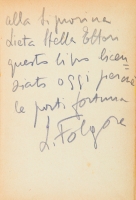 alla Signorina
Lieta Stella
questo libro licen
ziato oggi perché
le porti fortuna
L. Folgore